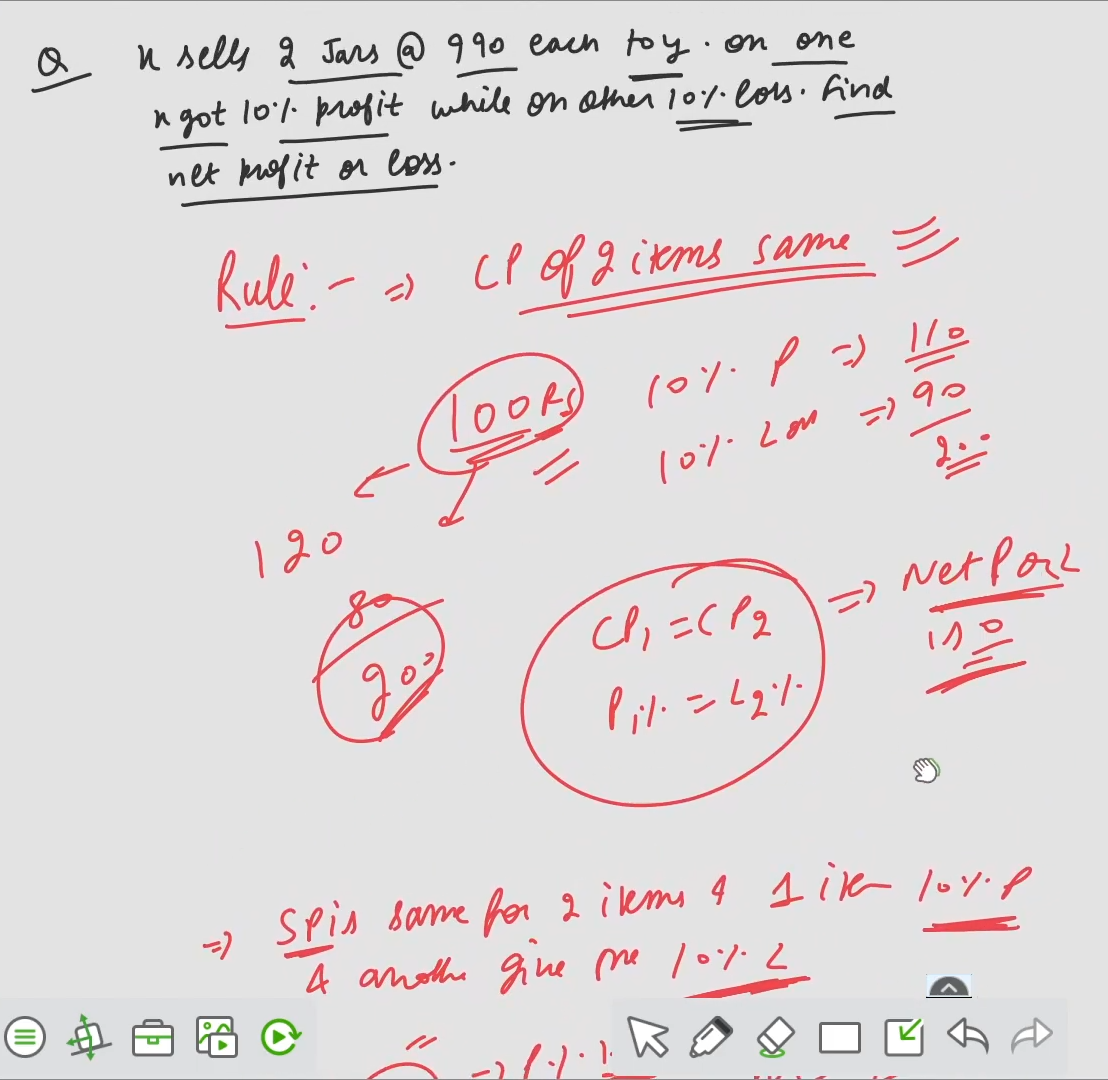 Q x sells 2 Jars @ 990 each toy. on one
x got 10% profit while on other 10% loss. find
net profit or loss.
Rule:- ⇒ CP of 2 items same
100Rs 10% P ⇒ 110
10% Loss ⇒ 90
200
120
80
200
CP₁ = CP₂ ⇒ Net P or L
P₁% = L₂% is 0
⇒ SP is same for 2 items & 1 item 10% P
& another give me 10% L